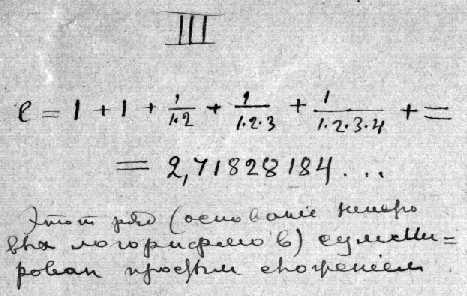 III
e = 1 + 1 + 1/1·2 + 1/1·2·3 + 1/1·2·3·4 + =
= 2,71828184...
Этот ряд (основание неперо
вых логорифмов) суммши=
рован простым сложением